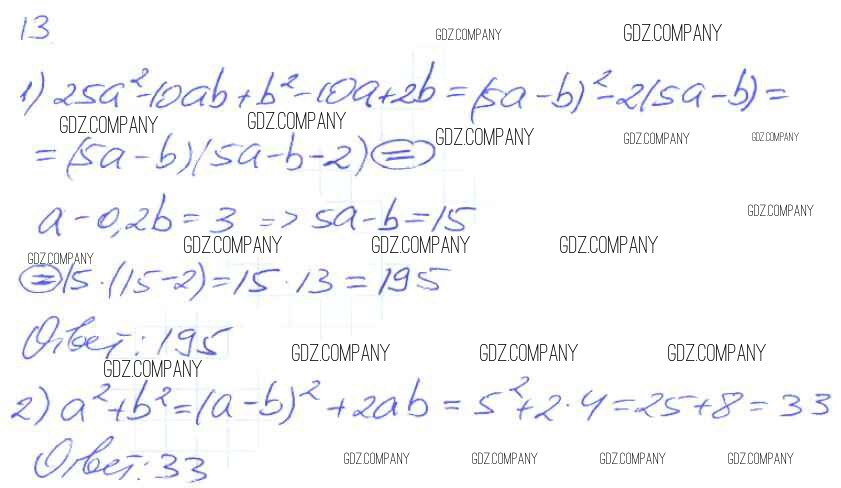 13
GDZ.COMPANY GDZ.COMPANY
1) 25a²-10ab+b²-10a+2b=(5a-b)²-2(5a-b)=
GDZ.COMPANY GDZ.COMPANY GDZ.COMPANY GDZ.COMPANY GDZ.COMPANY
=(5a-b)(5a-b-2)=
GDZ.COMPANY
a-0,2b=3 => 5a-b=15
GDZ.COMPANY GDZ.COMPANY GDZ.COMPANY GDZ.COMPANY
=15·(15-2)=15·13=195
Ответ: 195
GDZ.COMPANY GDZ.COMPANY GDZ.COMPANY GDZ.COMPANY
2) a²+b²=(a-b)²+2ab=5²+2·4=25+8=33
Ответ: 33
GDZ.COMPANY GDZ.COMPANY GDZ.COMPANY GDZ.COMPANY